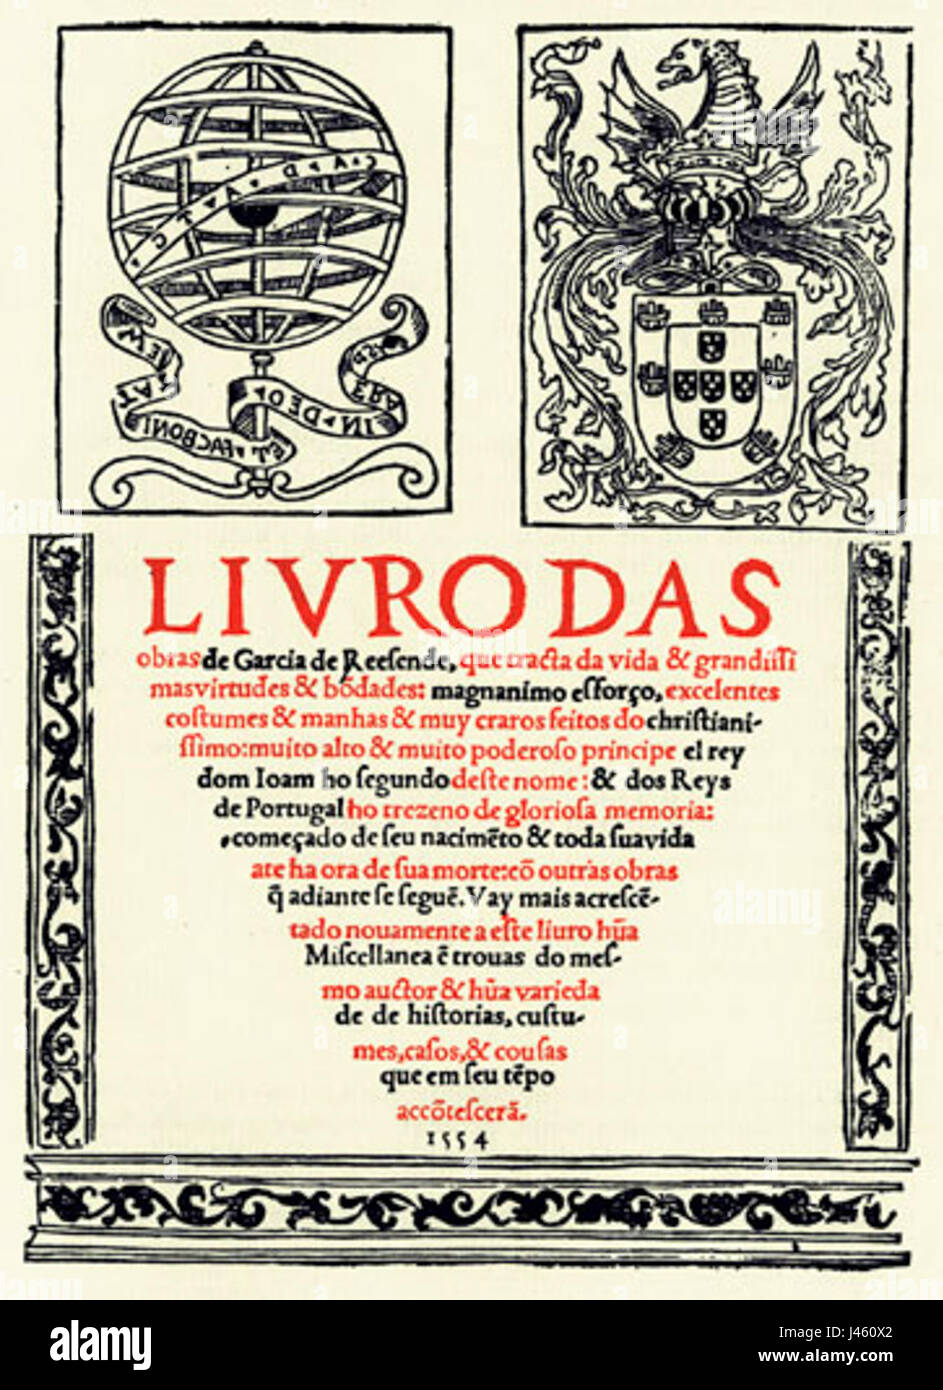 SPERA
IN DEO
ET FAC BONI
TATEM
LIVRO DAS
obras de Garcia de Reesende, que tracta da vida & grandissi
mas virtudes & bõdades: magnanimo esforço, excelentes
costumes & manhas & muy craros feitos do christiani-
ssimo: muito alto & muito poderoso principe el rey
dom Ioam ho segundo deste nome: & dos Reys
de Portugal ho trezeno de gloriosa memoria:
começado de seu nacimẽto & toda sua vida
ate ha ora de sua morte: cõ outras obras
q̃ adiante se seguẽ. Vay mais acrescẽ-
tado nouamente a este liuro hũa
Miscellanea ẽ trouas do mes-
mo auctor & hũa varieda
de de historias, custu-
mes, casos, & cousas
que em seu tẽpo
accõtescerã.
1554
alamy
Image ID: J460X2
www.alamy.com